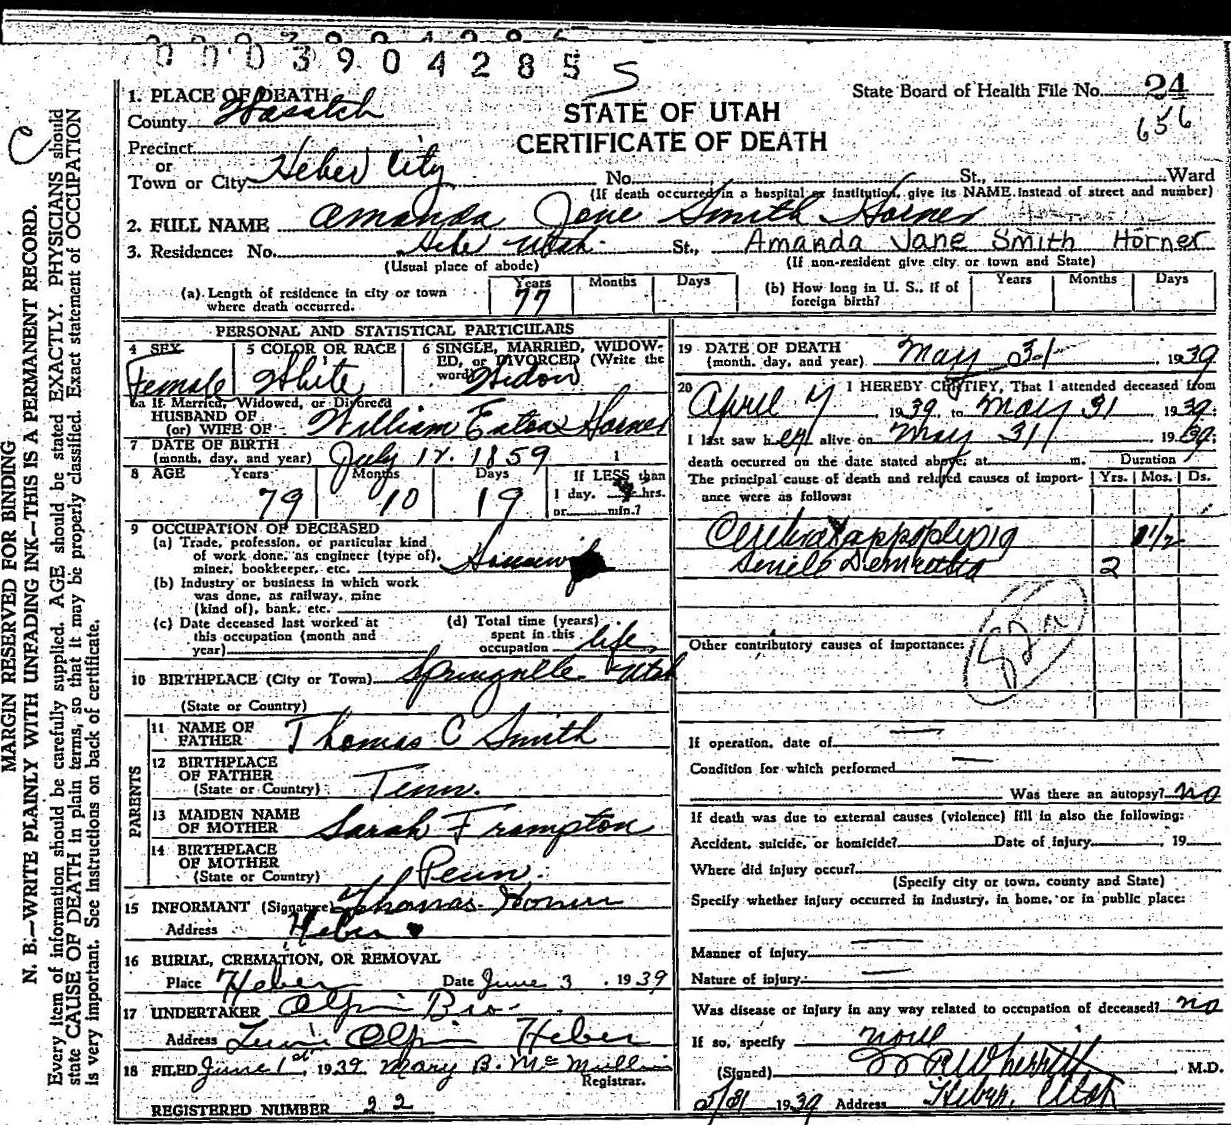 0003904285 5
State Board of Health File No. 24
656
1. PLACE OF DEATH
County Wasatch
STATE OF UTAH
CERTIFICATE OF DEATH
Precinct
or
Town or City Heber City No. St., Ward
(If death occurred in a hospital or institution, give its NAME instead of street and number)
2. FULL NAME Amanda Jane Smith Horner
3. Residence: No. Utah St., Amanda Jane Smith Horner
(Usual place of abode) (If non-resident give city or town and State)
(a) Length of residence in city or town where death occurred. Years 77 Months Days
(b) How long in U. S., if of foreign birth? Years Months Days
PERSONAL AND STATISTICAL PARTICULARS
4 SEX Female
5 COLOR OR RACE White
6 SINGLE, MARRIED, WIDOWED, or DIVORCED (Write the word) Widow
6a If Married, Widowed, or Divorced
HUSBAND OF
(or) WIFE OF William Eaton Horner
7 DATE OF BIRTH
(month, day, and year) July 12. 1859
8 AGE Years 79 Months 10 Days 19 If LESS than
1 day, hrs.
or min.?
9 OCCUPATION OF DECEASED
(a) Trade, profession, or particular kind
of work done, as engineer (type of),
miner, bookkeeper, etc.
(b) Industry or business in which work
was done, as railway, mine
(kind of), bank, etc.
(c) Date deceased last worked at
this occupation (month and
year)
(d) Total time (years)
spent in this
occupation life
10 BIRTHPLACE (City or Town) Springville Utah
(State or Country)
PARENTS
11 NAME OF
FATHER Thomas C Smith
12 BIRTHPLACE
OF FATHER
(State or Country) Tenn.
13 MAIDEN NAME
OF MOTHER Sarah Frampton
14 BIRTHPLACE
OF MOTHER
(State or Country) Penn.
15 INFORMANT (Signature) Thomas Horner
Address Heber
16 BURIAL, CREMATION, OR REMOVAL
Place Heber Date June 3 1939
17 UNDERTAKER Olpin Bro
Address Heber
18 FILED June 1st, 1939 Mary B. McMullin
Registrar.
REGISTERED NUMBER 22
19 DATE OF DEATH
(month, day, and year) May 31 1939
20 I HEREBY CERTIFY, That I attended deceased from
April 7 1939, to May 31 1939;
I last saw her alive on May 31 1939;
death occurred on the date stated above; at m. Duration
The principal cause of death and related causes of importance were as follows: Yrs. Mos. Ds.
1 1/2
Senile 2
Other contributory causes of importance:
82a
If operation, date of
Condition for which performed
Was there an autopsy? no
If death was due to external causes (violence) fill in also the following:
Accident, suicide, or homicide? Date of injury , 19
Where did injury occur?
(Specify city or town, county and State)
Specify whether injury occurred in industry, in home, or in public place:
Manner of injury
Nature of injury
Was disease or injury in any way related to occupation of deceased? no
If so, specify
(Signed) M.D.
5/31 1939 Address Heber, Utah
MARGIN RESERVED FOR BINDING
N. B.—WRITE PLAINLY WITH UNFADING INK—THIS IS A PERMANENT RECORD.
Every item of information should be carefully supplied. AGE should be stated EXACTLY. PHYSICIANS should
state CAUSE OF DEATH in plain terms, so that it may be properly classified. Exact statement of OCCUPATION
is very important. See instructions on back of certificate.